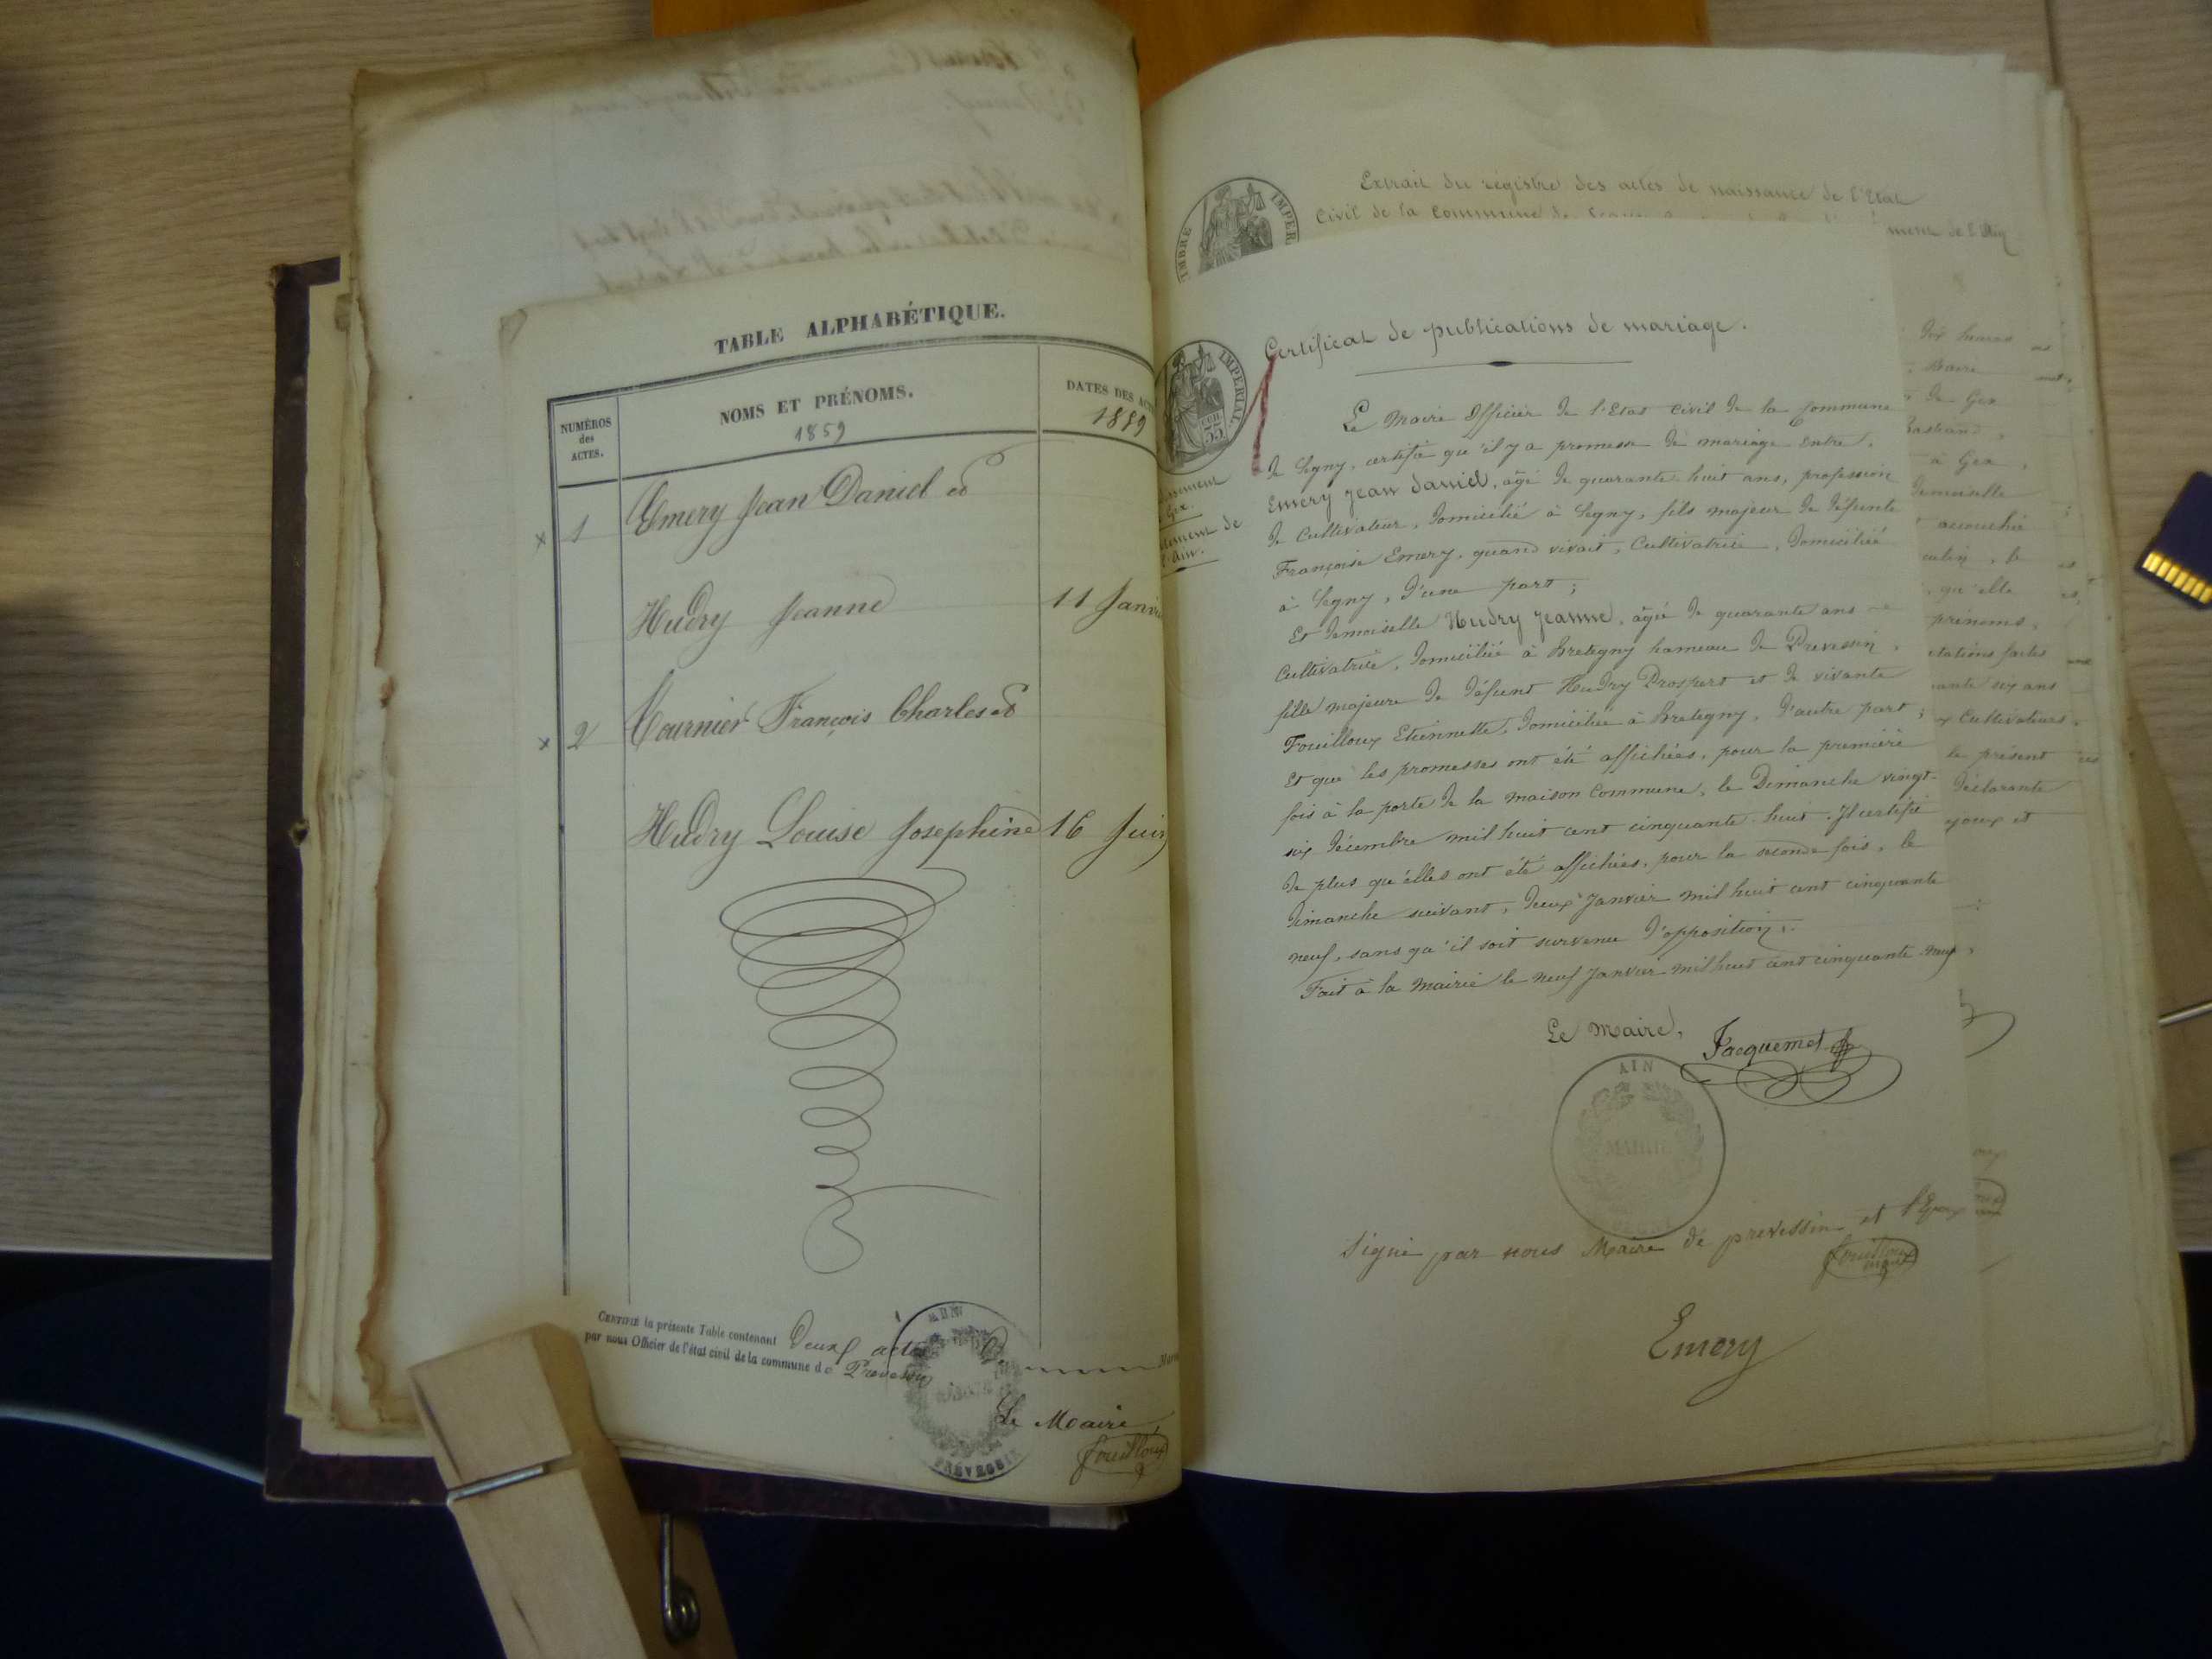 TABLE ALPHABÉTIQUE.
NUMÉROS
des
ACTES.
NOMS ET PRÉNOMS.
1859
DATES DES ACT
1859
x 1 Emery Jean Daniel et
Hudry Jeanne 11 Janvi
x 2 Tournier François Charles et
Hudry Louise Josephine 16 Juin
CERTIFIÉ la présente Table contenant Deux actes
par nous Officier de l'état civil de la commune de Prevessin
Le Maire
Fouilloux
Extrait du régistre des actes de naissance de l'Etat
Civil de la Commune de
ment de l'Ain
TIMBRE IMPER
IMPERIAL
Certificat de publications de mariage.
Gex.
tement de
l'Ain.
Le Maire Officier de l'Etat Civil de la Commune
de Segny, certifie qu'il y a promesse de mariage Entre,
Emery Jean Daniel, âgé de quarante huit ans, profession
de Cultivateur, domicilié à Segny, fils majeur de défunte
Françoise Emery, quand vivait, Cultivatrice, domiciliée
à Segny, d'une part;
Et demoiselle Hudry Jeanne, âgée de quarante ans
Cultivatrice, domiciliée à Bretegny hameau de Prevessin,
fille majeure de défunt Hudry Prospert et de vivante
Fouilloux Etiennette, domiciliée à Bretegny, d'autre part;
Et que les promesses ont été affichées, pour la première
fois à la porte de la maison Commune, le Dimanche vingt-
six décembre mil huit cent cinquante-huit. Il certifie
de plus qu'elles ont été affichées, pour la seconde fois, le
dimanche suivant, deux Janvier mil huit cent cinquante
neuf, sans qu'il soit survenu d'opposition.
Fait à la Mairie le neuf Janvier mil huit cent cinquante neuf,
Le Maire,
Jacquemet
AIN
MAIRIE
Signé par nous Maire de prevessin et l'Epoux
Fouilloux
Emery
de Gex
à Gex,
demoiselle
accouchée
qu'elle
prénoms,
tations faites
ante six ans
x Cultivateurs
le présent
déclarante